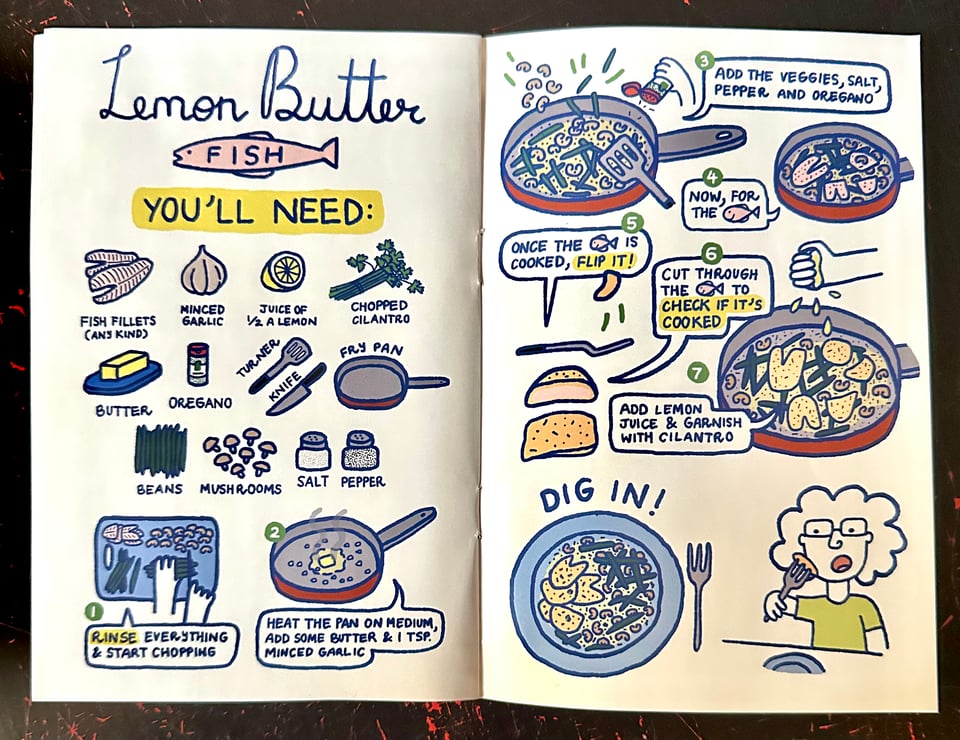 Lemon Butter
FISH
YOU'LL NEED:
FISH FILLETS
(ANY KIND)
MINCED
GARLIC
JUICE OF
1/2 A LEMON
CHOPPED
CILANTRO
BUTTER
OREGANO
TURNER
KNIFE
FRY PAN
BEANS
MUSHROOMS
SALT
PEPPER
1
RINSE EVERYTHING
& START CHOPPING
2
HEAT THE PAN ON MEDIUM,
ADD SOME BUTTER & 1 TSP.
MINCED GARLIC
3
ADD THE VEGGIES, SALT,
PEPPER AND OREGANO
4
NOW, FOR
THE
5
ONCE THE IS
COOKED, FLIP IT!
6
CUT THROUGH
THE TO
CHECK IF IT'S
COOKED
7
ADD LEMON
JUICE & GARNISH
WITH CILANTRO
DIG IN!